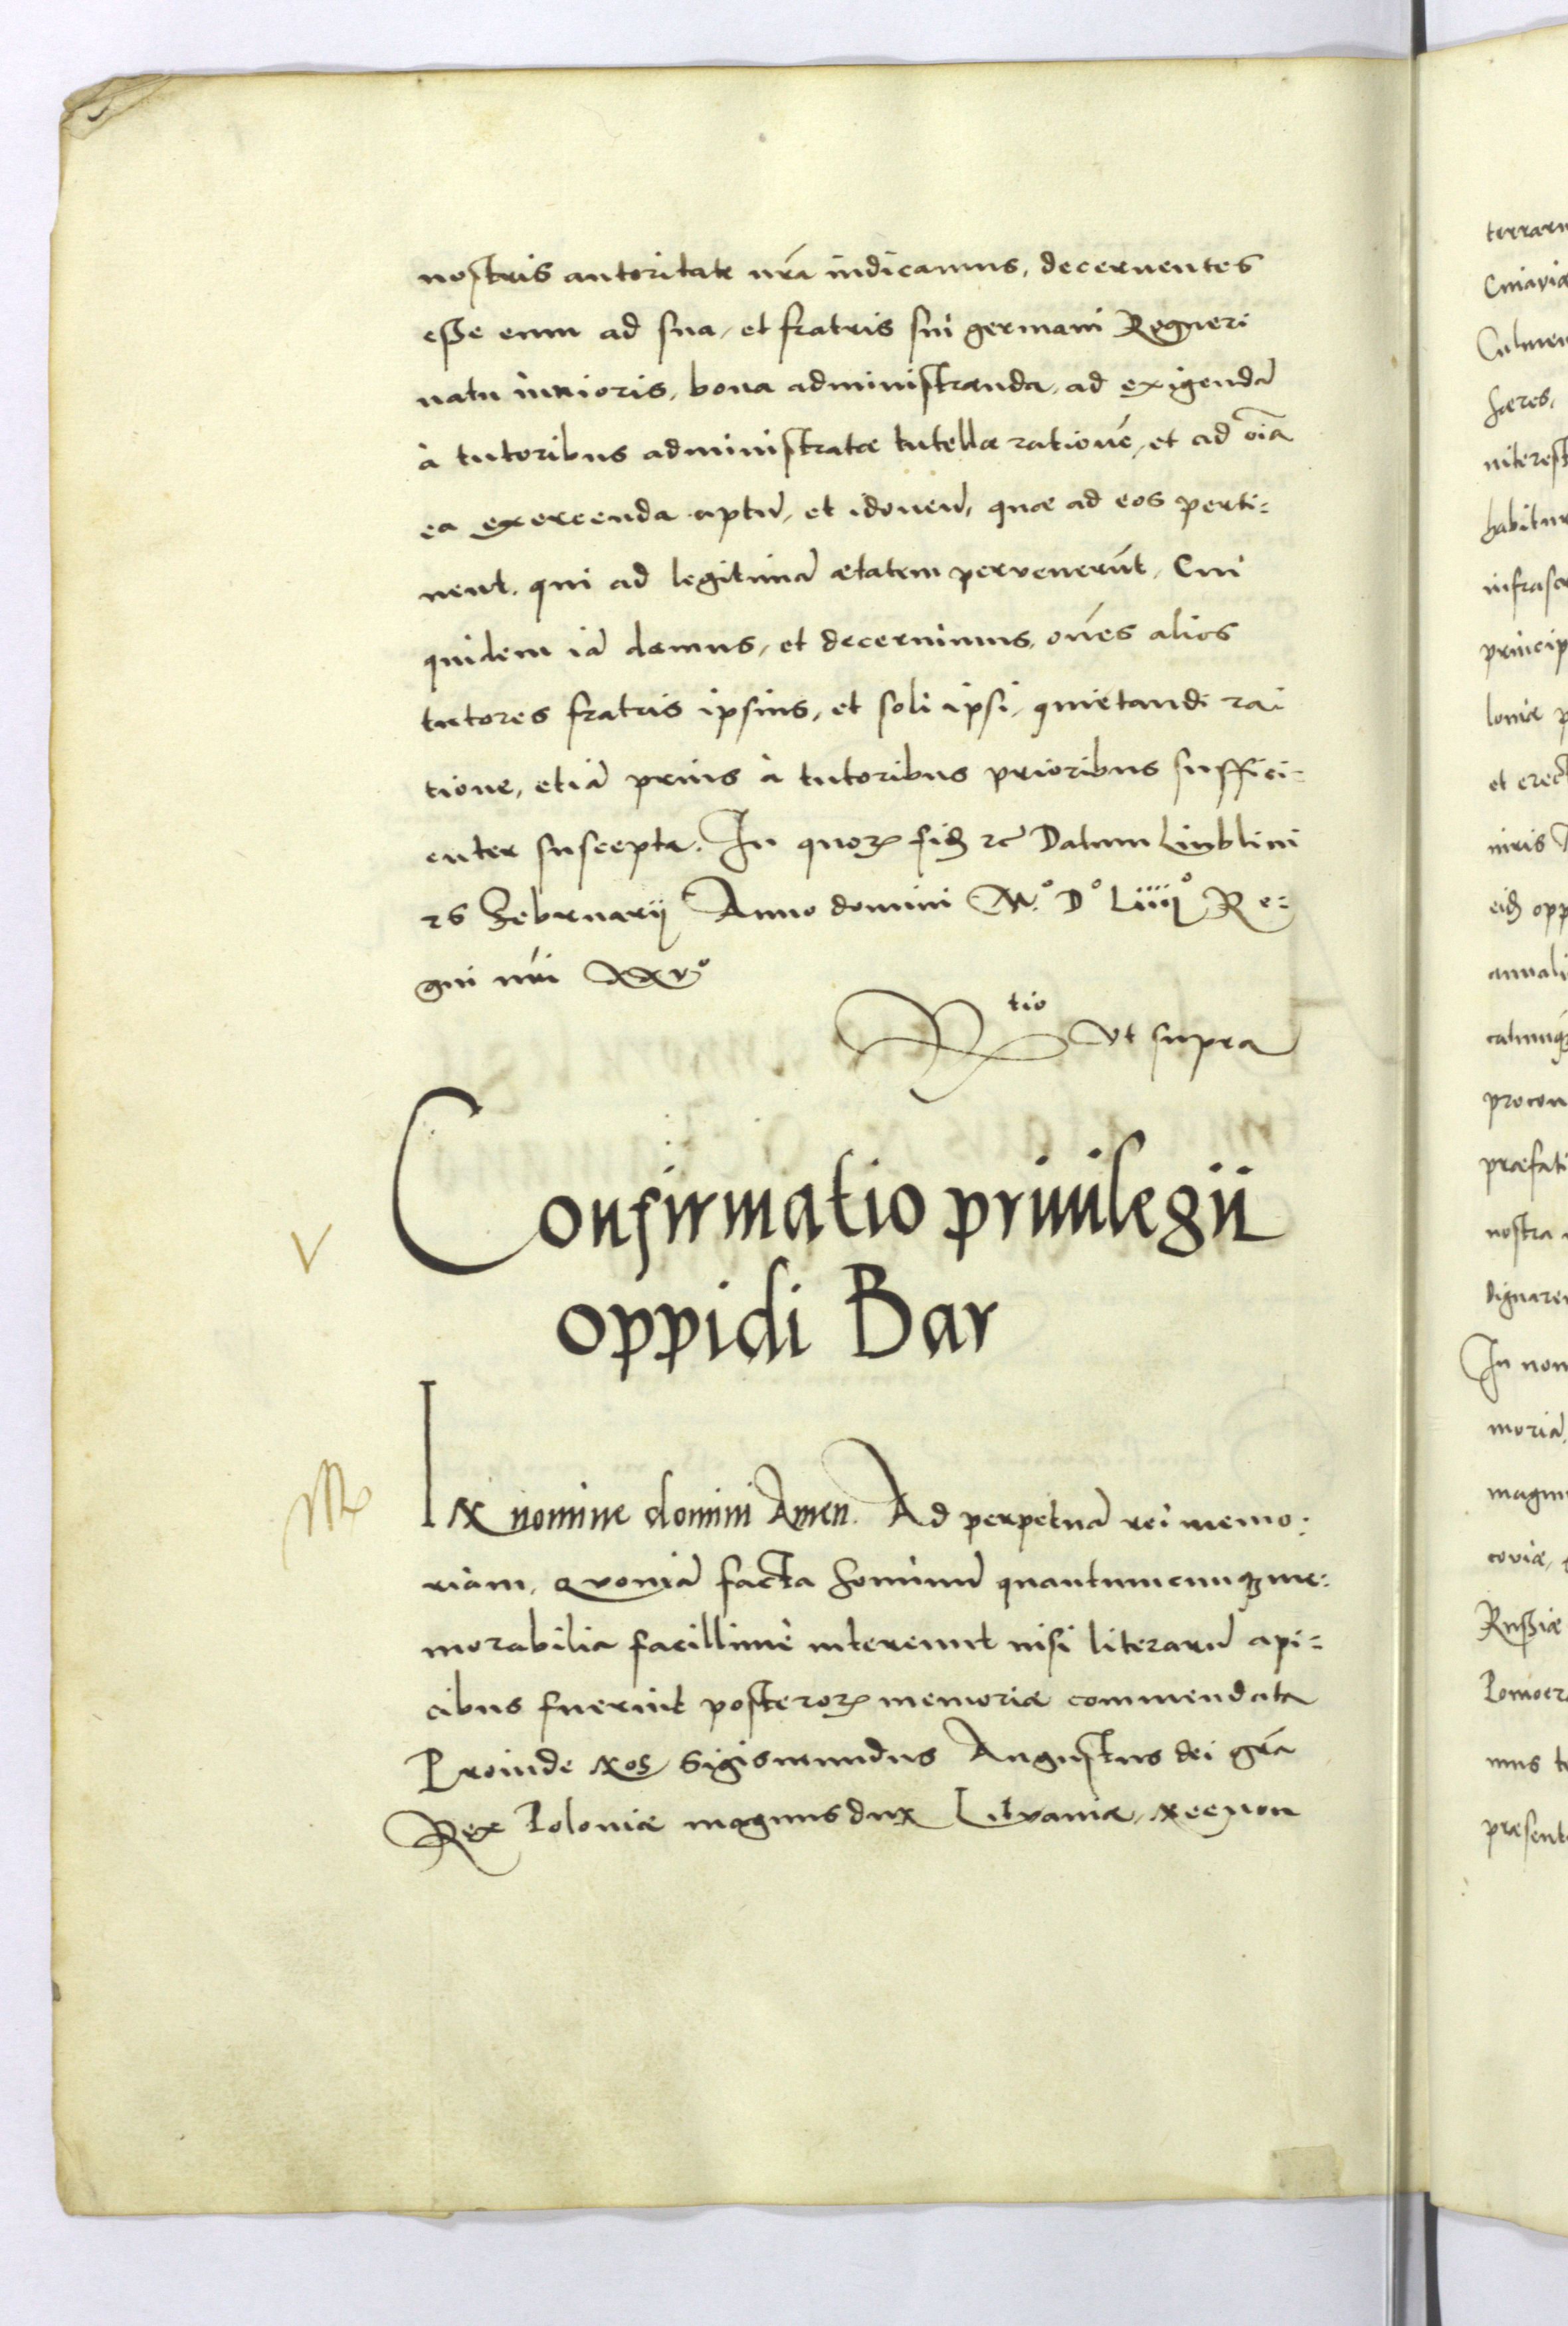 nostris autoritate nrã iudicamus, decernentes
esse eum ad sua, et fratris sui germani Regneri
natu iunioris, bona administranda, ad exigendã
à tutoribus administratæ tutellæ rationẽ, et ad oĩa
ea exercenda aptũ, et idoneũ, quæ ad eos perti=
nent, qui ad legitimã ætatem pervenerũt, Cui
quidem iã damus, et decernimus, oẽs alios
tutores fratris ipsius, et soli ipsi, quietandi ra=
tione, etiã prius à tutoribus prioribus suffici=
enter suscepta. In quoꝝ fidẽ ꝛc Datum Liublini
26 Februarij Anno domini M° D° Liiij° Re=
gni nri XXv°
Rtio Vt supra
Confirmatio priuilegij
oppidi Bar
V
In nomine domini Amen. Ad perpetuã rei memo=
riam, Qvoniã facta hominũ quantumcunqꝫ me=
morabilia facillimè intereunt nisi literarũ api=
cibus fuerint posteroꝝ memoriæ commendata
Proinde Nos Sigismundus Augustus dei grã
Rex Poloniæ magnus dux Litvaniæ, Necnon
terrarũ
Cuiaviæ
Culmen
hæres,
interest
habitur
infrasc
princip
loniæ p
et erect
niris
eidẽ opp
annali
calmuqꝫ
procon
præfati
nostra
dignare
In nom
moriã,
magnu
coviæ,
Russiæ
Pomoera
mus t
præsent